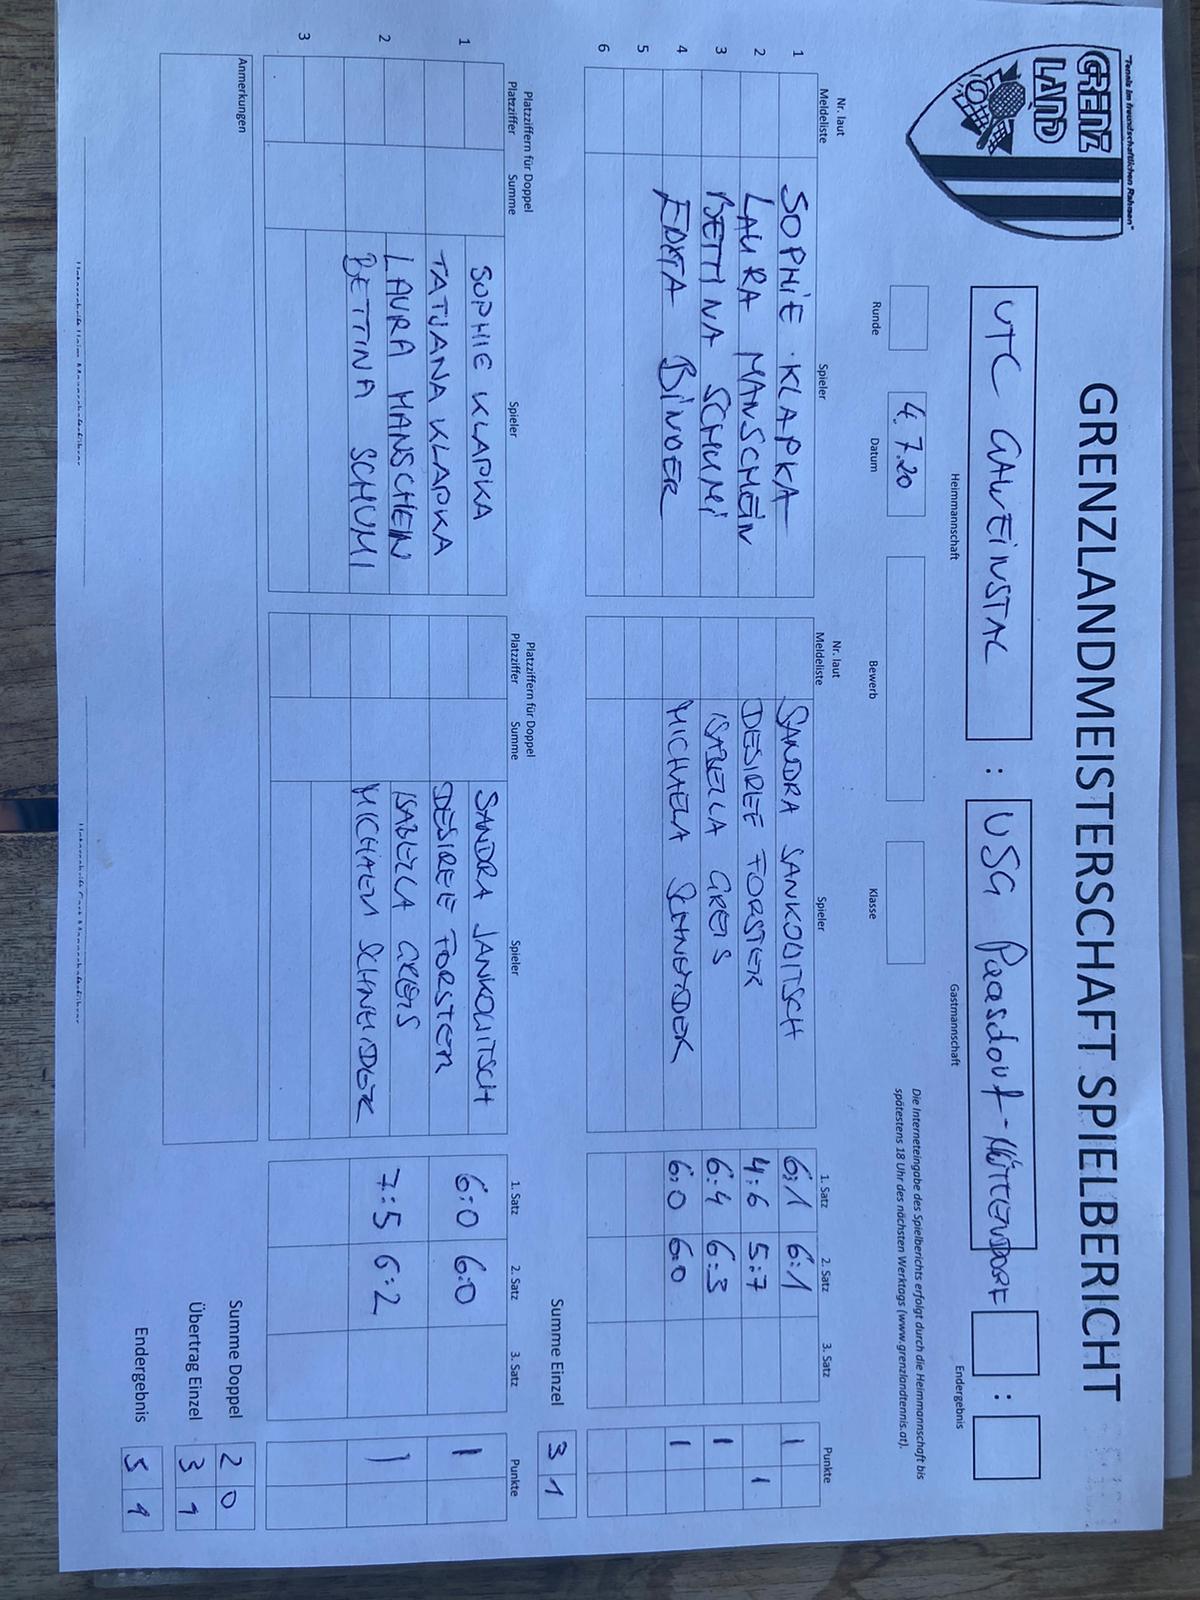 "Tennis im freundschaftlichen Rahmen"
GRENZ
LAND
GRENZLANDMEISTERSCHAFT SPIELBERICHT
UTC GAWEINSTAL : USG Paasdorf-Hüttendorf :
Heimmannschaft Gastmannschaft Endergebnis
4.7.20
Runde Datum Bewerb Klasse
Die Interneteingabe des Spielberichts erfolgt durch die Heimmannschaft bis
spätestens 18 Uhr des nächsten Werktags (www.grenzlandtennis.at).
Nr. laut Meldeliste Spieler Nr. laut Meldeliste Spieler 1. Satz 2. Satz 3. Satz Punkte
1 SOPHIE KLAPKA SANDRA JANKOVITSCH 6:1 6:1 1
2 LAURA MANSCHEIN DESIREE FORSTER 4:6 5:7 1
3 BETTINA SCHUMI ISABELLA GREIS 6:4 6:3 1
4 EDITA BINDER MICHAELA SCHNEIDER 6:0 6:0 1
5
6
Summe Einzel 3 1
Platzziffern für Doppel Platzziffern für Doppel
Platzziffer Summe Spieler Platzziffer Summe Spieler 1. Satz 2. Satz 3. Satz Punkte
1 SOPHIE KLAPKA SANDRA JANKOVITSCH
TATJANA KLAPKA DESIREE FORSTER 6:0 6:0 1
2 LAURA MANSCHEIN ISABELLA GREIS
BETTINA SCHUMI MICHAELA SCHNEIDER 7:5 6:2 1
3
Anmerkungen
Summe Doppel 2 0
Übertrag Einzel 3 1
Endergebnis 5 1